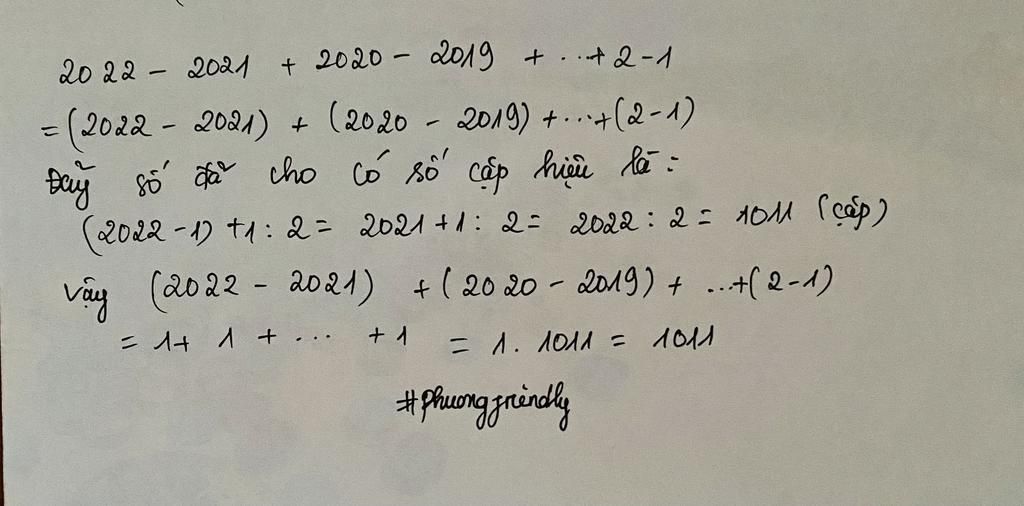 2022 - 2021 + 2020 - 2019 + ... + 2 - 1
= (2022 - 2021) + (2020 - 2019) + ... + (2 - 1)
Dãy số đã cho có số cặp hiệu là:
(2022 - 1) + 1 : 2 = 2021 + 1 : 2 = 2022 : 2 = 1011 (cặp)
Vậy (2022 - 2021) + (2020 - 2019) + ... + (2 - 1)
= 1 + 1 + ... + 1 = 1. 1011 = 1011
#phuongfriendly